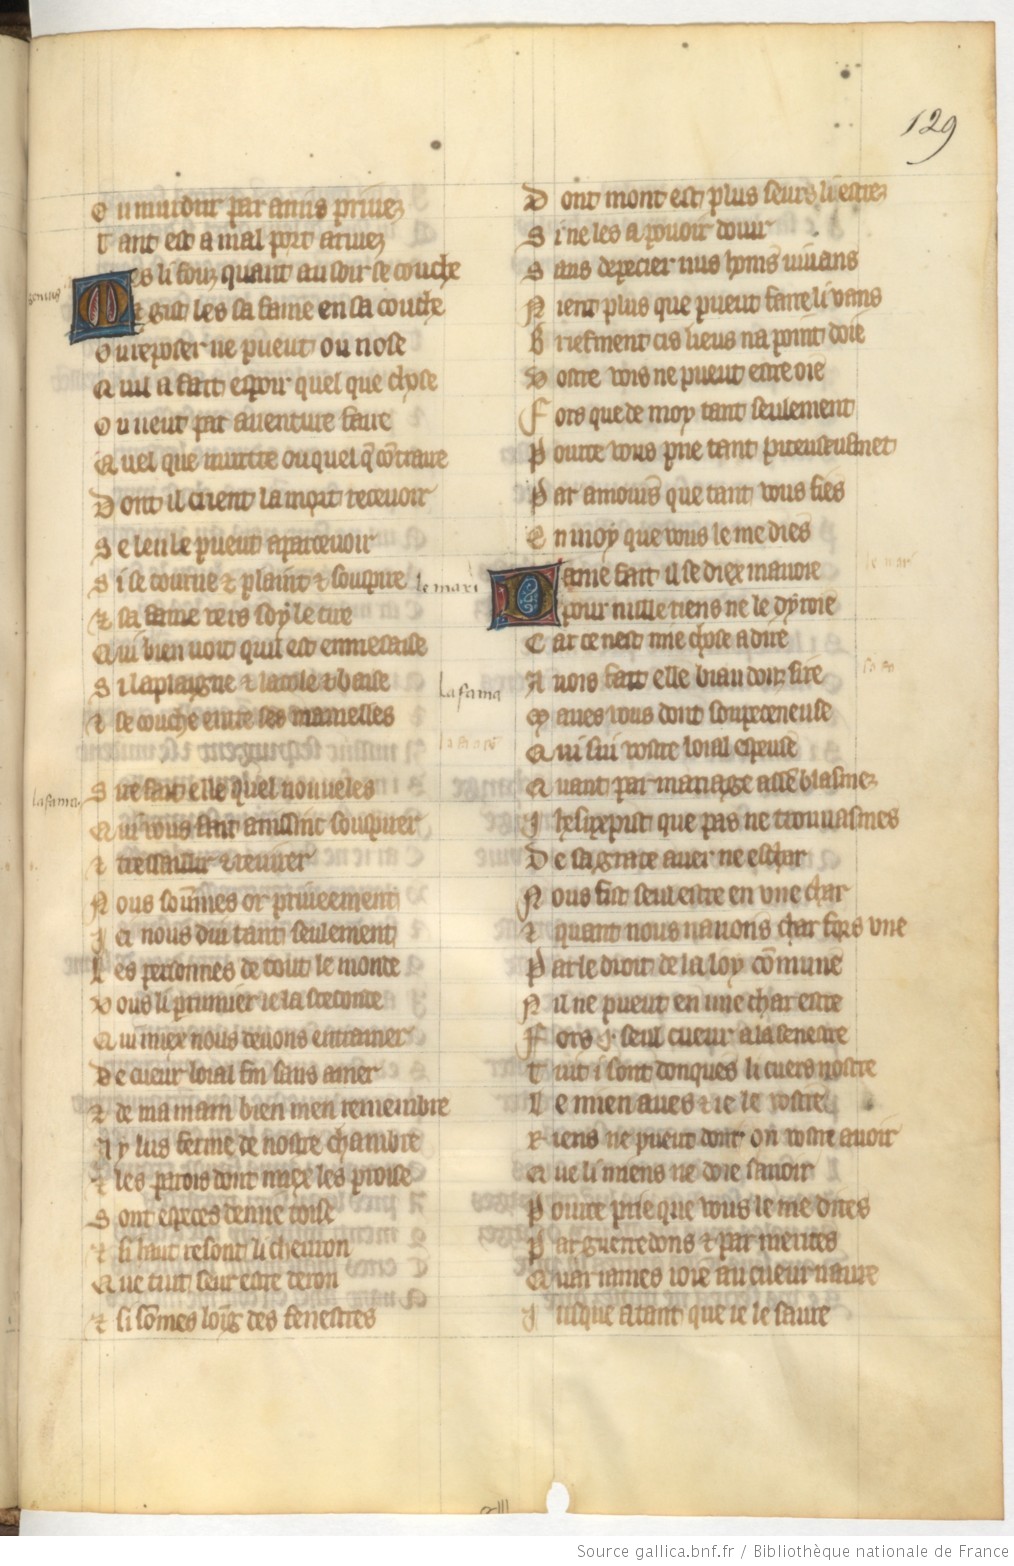 129
O u murdrir par amis privez
T ant est a mal port arivez
M es li fouz quant au soir se couche
Et gist les sa fame en sa couche
O u reposer ne pueut ou nose
Q uil a fait espoir quel que chose
O u veut par aventure faire
Q uel que murtre ou quel q̄ cōtraire
D ont il crient la mort recevoir
S e len le pueut apercevoir
S i se tourne ⁊ plaint ⁊ souspire
⁊ sa fame vers soy le tire
Q ui bien voit quil est en mesaise
S i laplaigne ⁊ lacole ⁊ baise
⁊ se couche entre ses mamelles
la fame
S ire fait elle quel nouveles
Q ui vous fait ainssinc souspirer
⁊ tressaillir ⁊ revirer
N ous sōmes or priveement
I ci nous dui tant seulement
L es personnes de tout le monde
V ous li premier ie la seconde
Q ui miex nous devons entramer
D e cueur loial fin sans amer
⁊ de ma main bien men remembre
A y lus ferme de nostre chambre
⁊ les parois dont miex les proise
S ont espesses demie toise
⁊ si haut resont li chevron
Q ue tuit seur estre devon
⁊ si sōmes loīg des fenestres
D ont mont est plus seurs li estrez
S i ne les a pouoir douvrir
S ans depecier nus homs vivans
N ient plus que pueut faire li vans
B riefment cis lieus na point doie
V ostre vois ne pueut estre oie
F ors que de moy tant seulement
P ource vous prie tant piteusement
P ar amours que tant vous fies
E n moy que vous le me dies
le mari
D ame fait il se diex mavoie
pour nulle riens ne le diroie
C ar ce nest mie chose a dire
la fame
A vois fait elle biau douz sire
M aves vous dont soupeceneuse
Q ui sui vostre loial espeuse
Q uant par mariage assēblasmez
I hesucrist que pas ne trouvasmes
D e sa grace aver ne eschar
N ous fist seul estre en une char
⁊ quant nous navons char fors une
P ar le droit de la loy cōmune
N il ne pueut en une char estre
F ors ·i· seul cueur a la senestre
T uit i sont donques li cuers nostre
L e mien aves ⁊ ie le vostre
R iens ne pueut dont on vostre avoir
Q ue li miens ne doie savoir
P ource prie que vous le me dites
P ar guerredons ⁊ par merites
Q uar iames ioie au cueur naure
I usque a tant que ie le saure
Source gallica.bnf.fr / Bibliothèque nationale de France